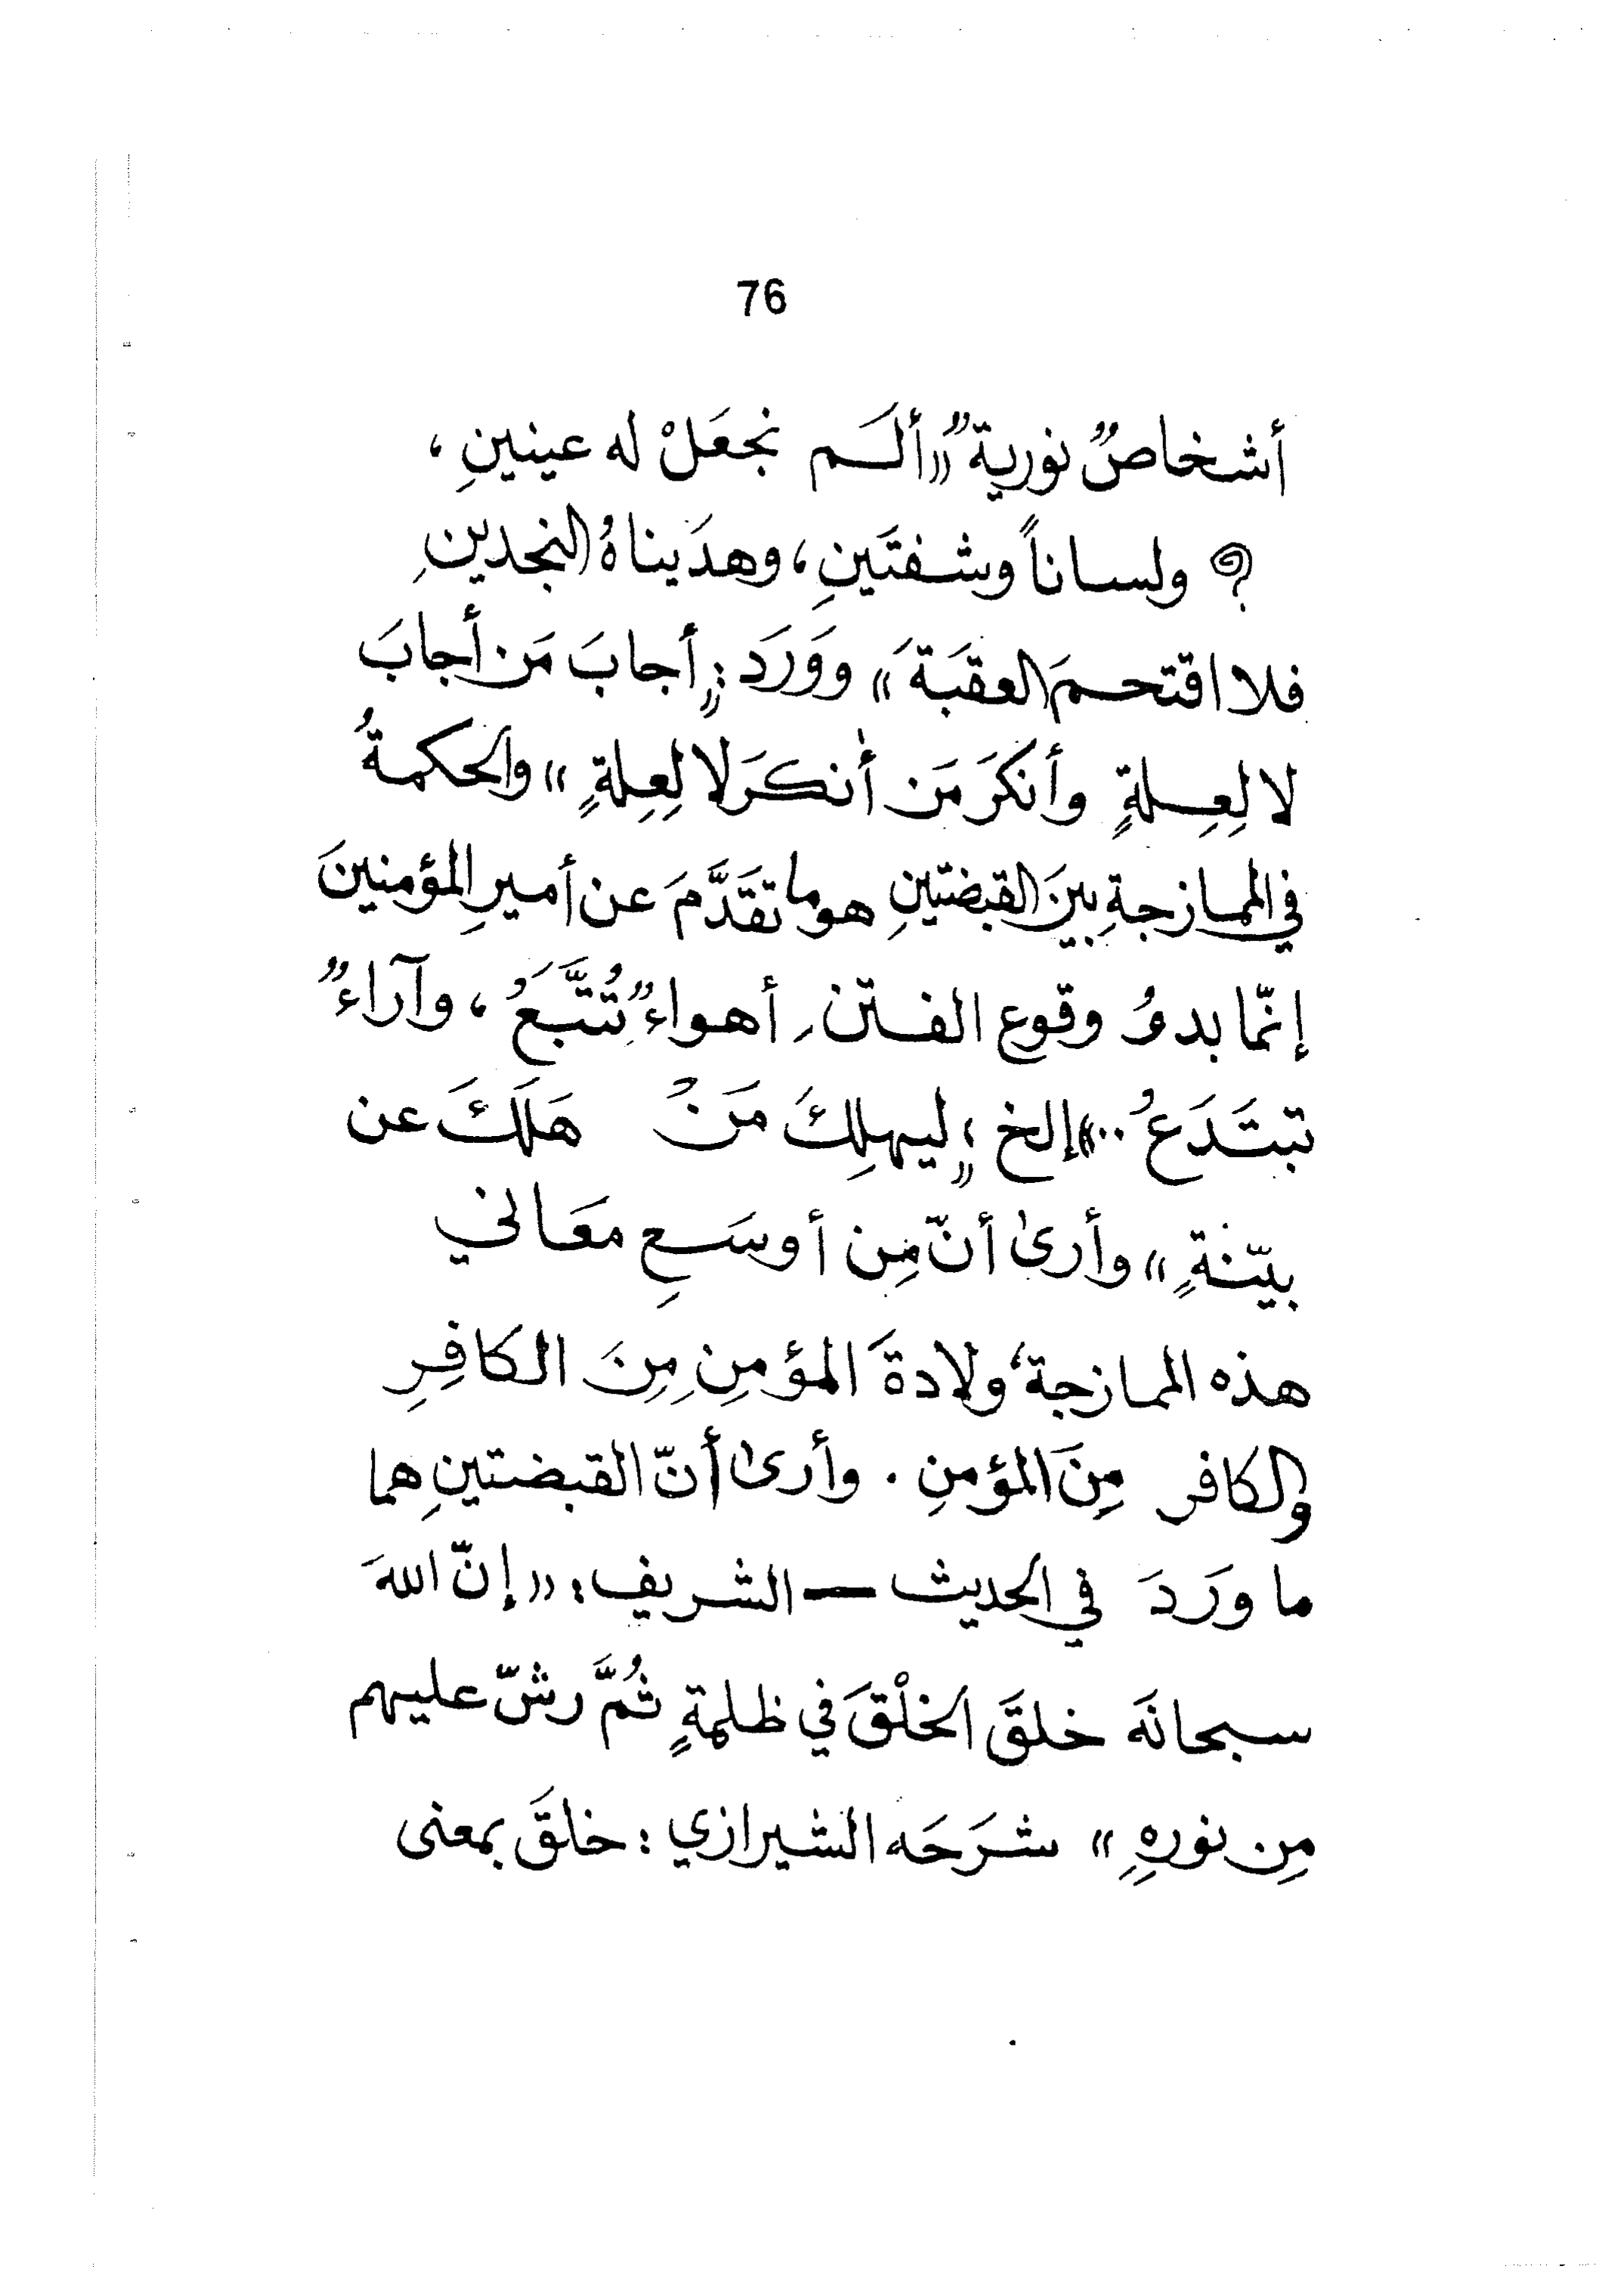 76
أشخاصٌ نوريةٌ «ألَم نجعَلْ له عينينِ ،
ولساناً وشفتَينِ ، وهدَيناهُ النجدينِ
فلا اقتحمَ العقبَةَ » ووَرَدَ : «أجابَ مَن أجابَ
لا لِعِلةٍ وأنكَرَ مَن أنكَرَ لا لِعِلةٍ » والحكمةُ
في الممازجةِ بينَ القبضتينِ هو ما تقَدَّمَ عن أميرِ المؤمنينَ
إنّما بدءُ وقوعِ الفتنِ أهواءٌ تُتَّبَعُ ، وآراءٌ
تبتَدَعُ ..» إلخ ، «ليهلِكَ مَنْ هَلَكَ عن
بيّنةٍ » وأرىٰ أنّ مِن أوسَعِ معَاني
هذه الممازجة ، ولادةَ المؤمِنِ مِنَ الكافِرِ
والكافر مِنَ المؤمنِ . وأرىٰ أنّ القبضتينِ هما
ما ورَدَ في الحديث — الشريف : «إنّ اللهَ
سبحانَه خلقَ الخلْقَ في ظلمةٍ ثُمَّ رشّ عليهم
مِن نورِهِ » شرَحَه الشيرازي : خلقَ بمعنى